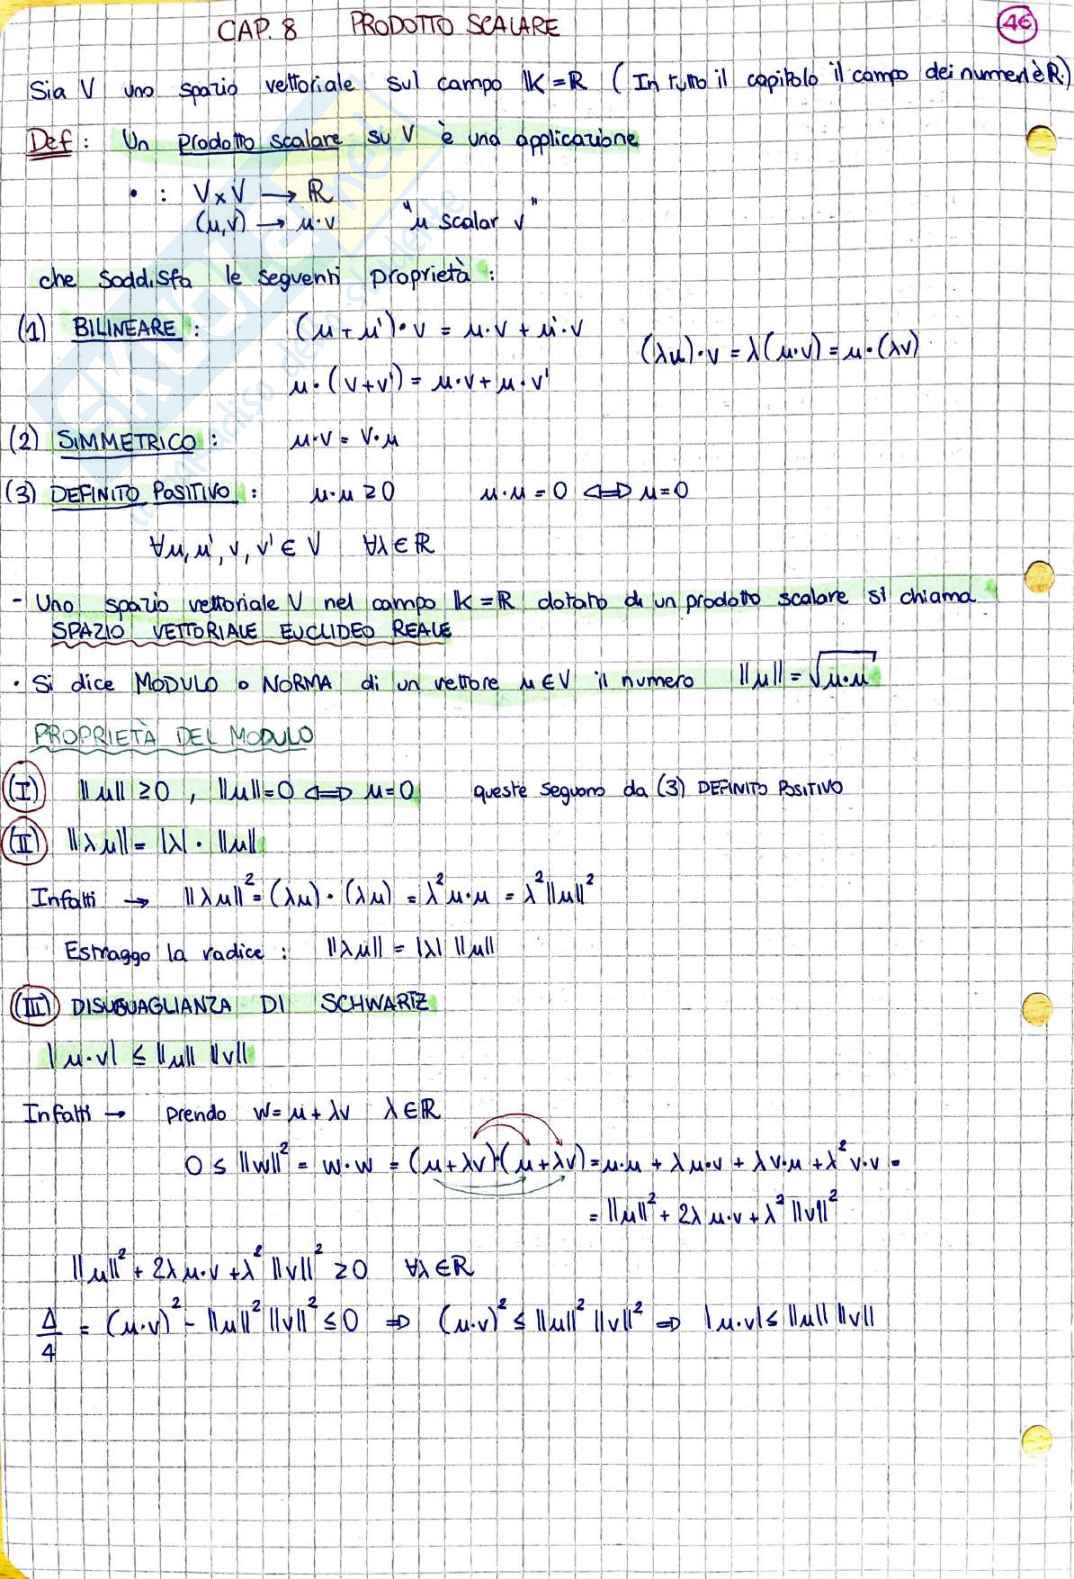 CAP. 8 PRODOTTO SCALARE
46
Sia V uno spazio vettoriale sul campo K = R (In tutto il capitolo il campo dei numeri è R.)
Def: Un prodotto scalare su V è una applicazione
• : V x V → R
(u,v) → u·v "u scalar v"
che soddisfa le seguenti proprietà:
(1) BILINEARE: (u + u')·v = u·v + u'·v
(λu)·v = λ(u·v) = u·(λv)
u·(v+v') = u·v + u·v'
(2) SIMMETRICO: u·v = v·u
(3) DEFINITO POSITIVO: u·u ≥ 0 u·u = 0 ⟺ u = 0
∀u, u', v, v' ∈ V ∀λ ∈ R
- Uno spazio vettoriale V nel campo K = R dotato di un prodotto scalare si chiama
SPAZIO VETTORIALE EUCLIDEO REALE
• Si dice MODULO o NORMA di un vettore u ∈ V il numero ||u|| = √u·u
PROPRIETÀ DEL MODULO
(I) ||u|| ≥ 0 , ||u|| = 0 ⟺ u = 0 queste seguono da (3) DEFINITO POSITIVO
(II) ||λu|| = |λ| · ||u||
Infatti → ||λu||² = (λu)·(λu) = λ²u·u = λ²||u||²
Estraggo la radice: ||λu|| = |λ| ||u||
(III) DISUGUAGLIANZA DI SCHWARTZ
|u·v| ≤ ||u|| ||v||
Infatti → prendo w = u + λv λ ∈ R
0 ≤ ||w||² = w·w = (u + λv)·(u + λv) = u·u + λu·v + λv·u + λ²v·v =
= ||u||² + 2λu·v + λ²||v||²
||u||² + 2λu·v + λ²||v||² ≥ 0 ∀λ ∈ R
Δ/4 = (u·v)² - ||u||²||v||² ≤ 0 ⇒ (u·v)² ≤ ||u||²||v||² ⇒ |u·v| ≤ ||u|| ||v||